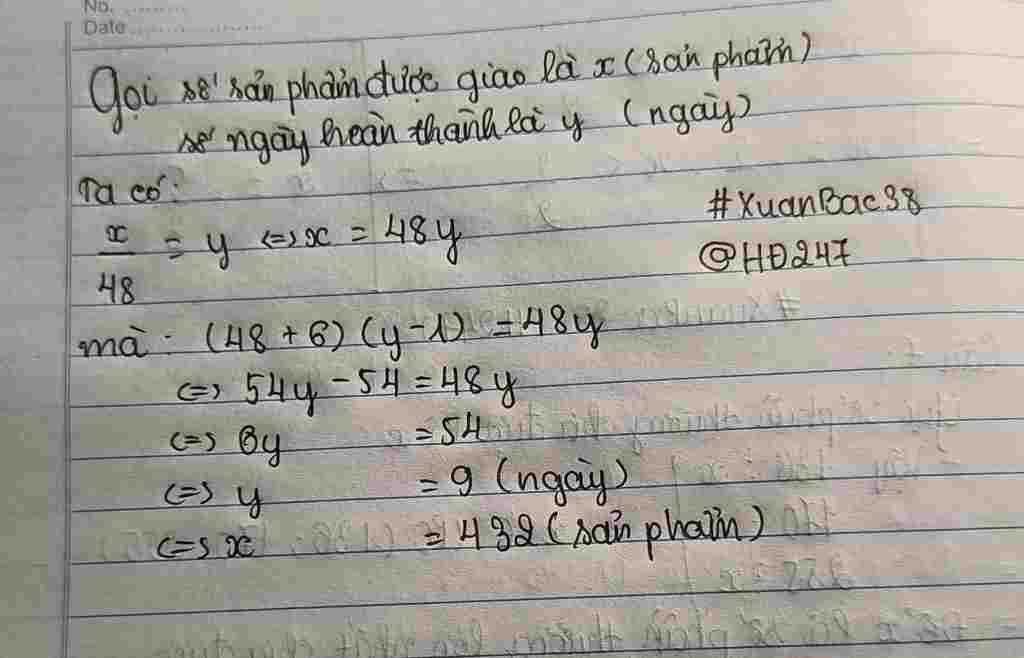 No. ............
Date ......................
Gọi số sản phẩm được giao là x (sản phẩm)
số ngày hoàn thành là y (ngày)
Ta có:
x/48 = y <=> x = 48y
#XuanBac38
@HĐ247
mà : (48 + 6) (y - 1) = 48y
<=> 54y - 54 = 48y
<=> 6y = 54
<=> y = 9 (ngày)
<=> x = 432 (sản phẩm)